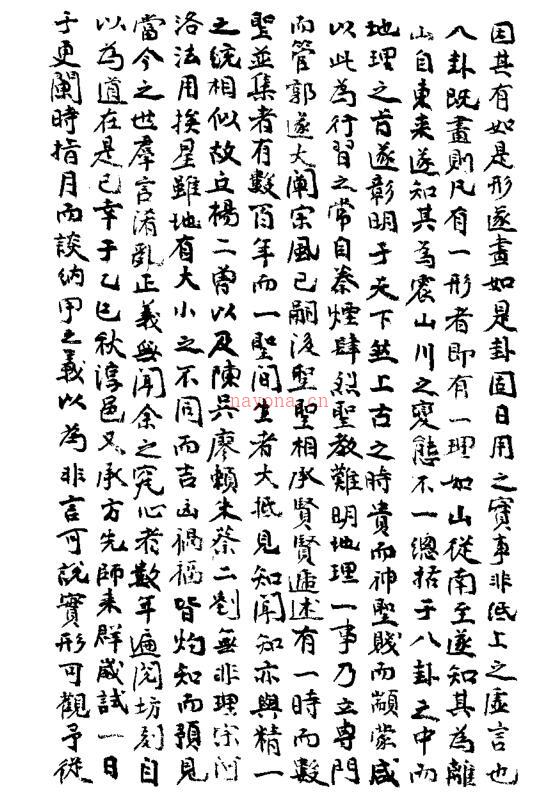 因其有如是形遂畫如是卦固日用之實事非紙上之虛言也
八卦既畫則凡有一形者即有一理如山從南至遂知其為離
山自東來遂知其為震山川之變態不一總括于八卦之中而
地理之旨遂彰明于天下然上古之時貴而神聖賤而顓蒙咸
以此為行習之常自秦煙肆烈聖教難明地理一事乃立專門
而管郭遂大闡宗風已嗣後聖聖相承賢賢遞述有一時而數
聖並集者有數百年而一聖間生者大抵見知聞知亦與精一
之統相似故立楊二曾以及陳吳廖賴朱蔡二劉無非理宗河
洛法用挨星雖地有大小之不同而吉凶禍福皆灼知而預見
當今之世群言淆亂正義無聞余之究心者數年遍閱坊刻自
以為道在是已幸于乙巳秋淳邑又承方先師來群咸試一日
于更闌時指月而談納甲之義以為非言可說實形可觀予從
nayona.cn